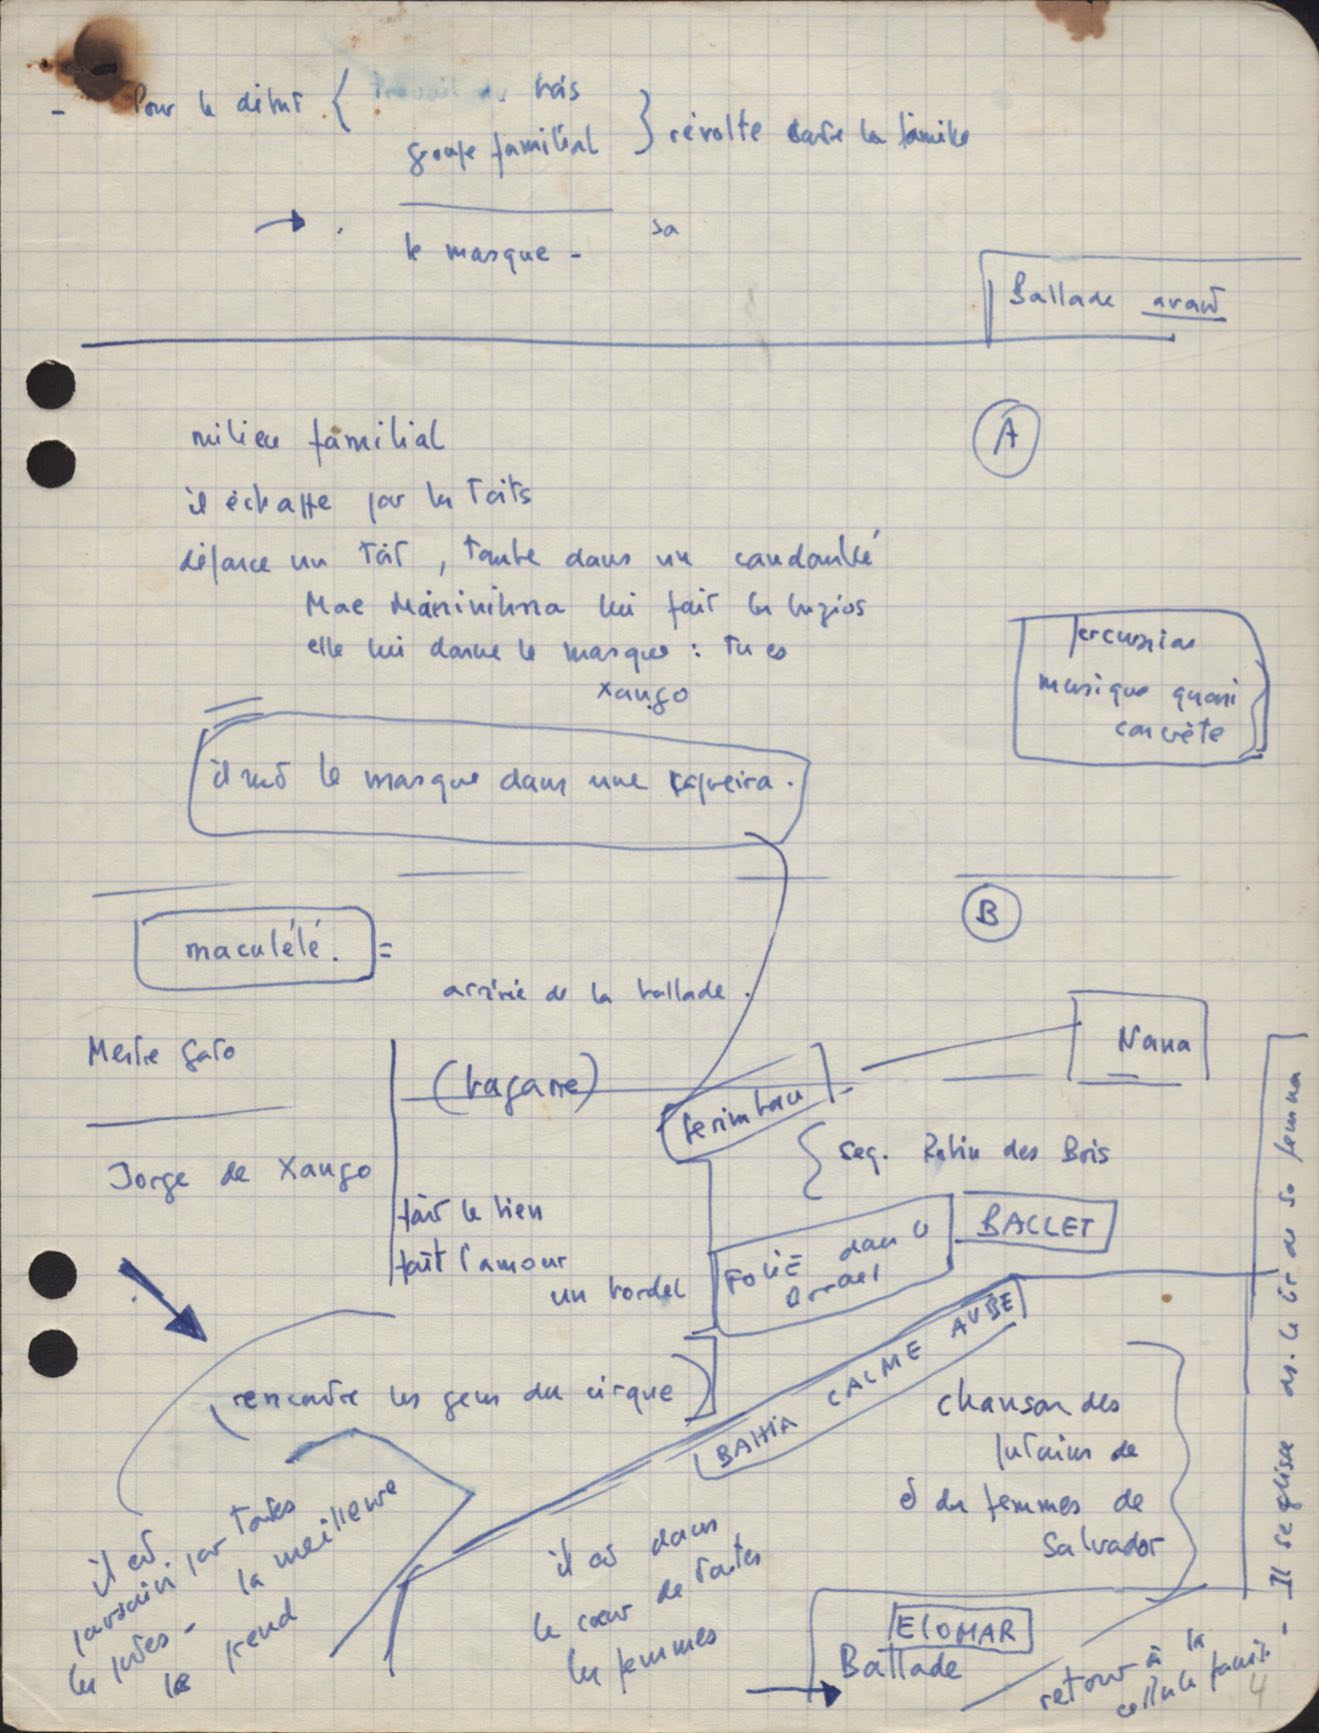 - Pour le début {
groupe familial } révolte contre la famille
→ le masque - sa
Ballade avant
A
milieu familial
il échappe par les toits
défonce un toit, tombe dans un candomblé
Mae Menininha lui fait les buzios
elle lui donne le masque : tu es
Xango
percussion
musique quasi
concrète
il met le masque dans une capoeira.
B
maculélé. =
arrivée de la ballade.
Nana
Mestre Gato
(bagarre)
berimbau
seq. Robin des Bois
Jorge de Xango
fait le bien
fait l'amour
un bordel
FOLIE dans le
BALLET
BAHIA CALME AUBE
(rencontre les gens du cirque)
chanson des
putains de
et des femmes de
Salvador
il est
poursuivi par toutes
les putes - la meilleure
le prend
il est dans
le cœur de toutes
les femmes
ELOMAR
Ballade
retour à la
cellule famili.
- Il se glisse ds. le lit de sa femme
4